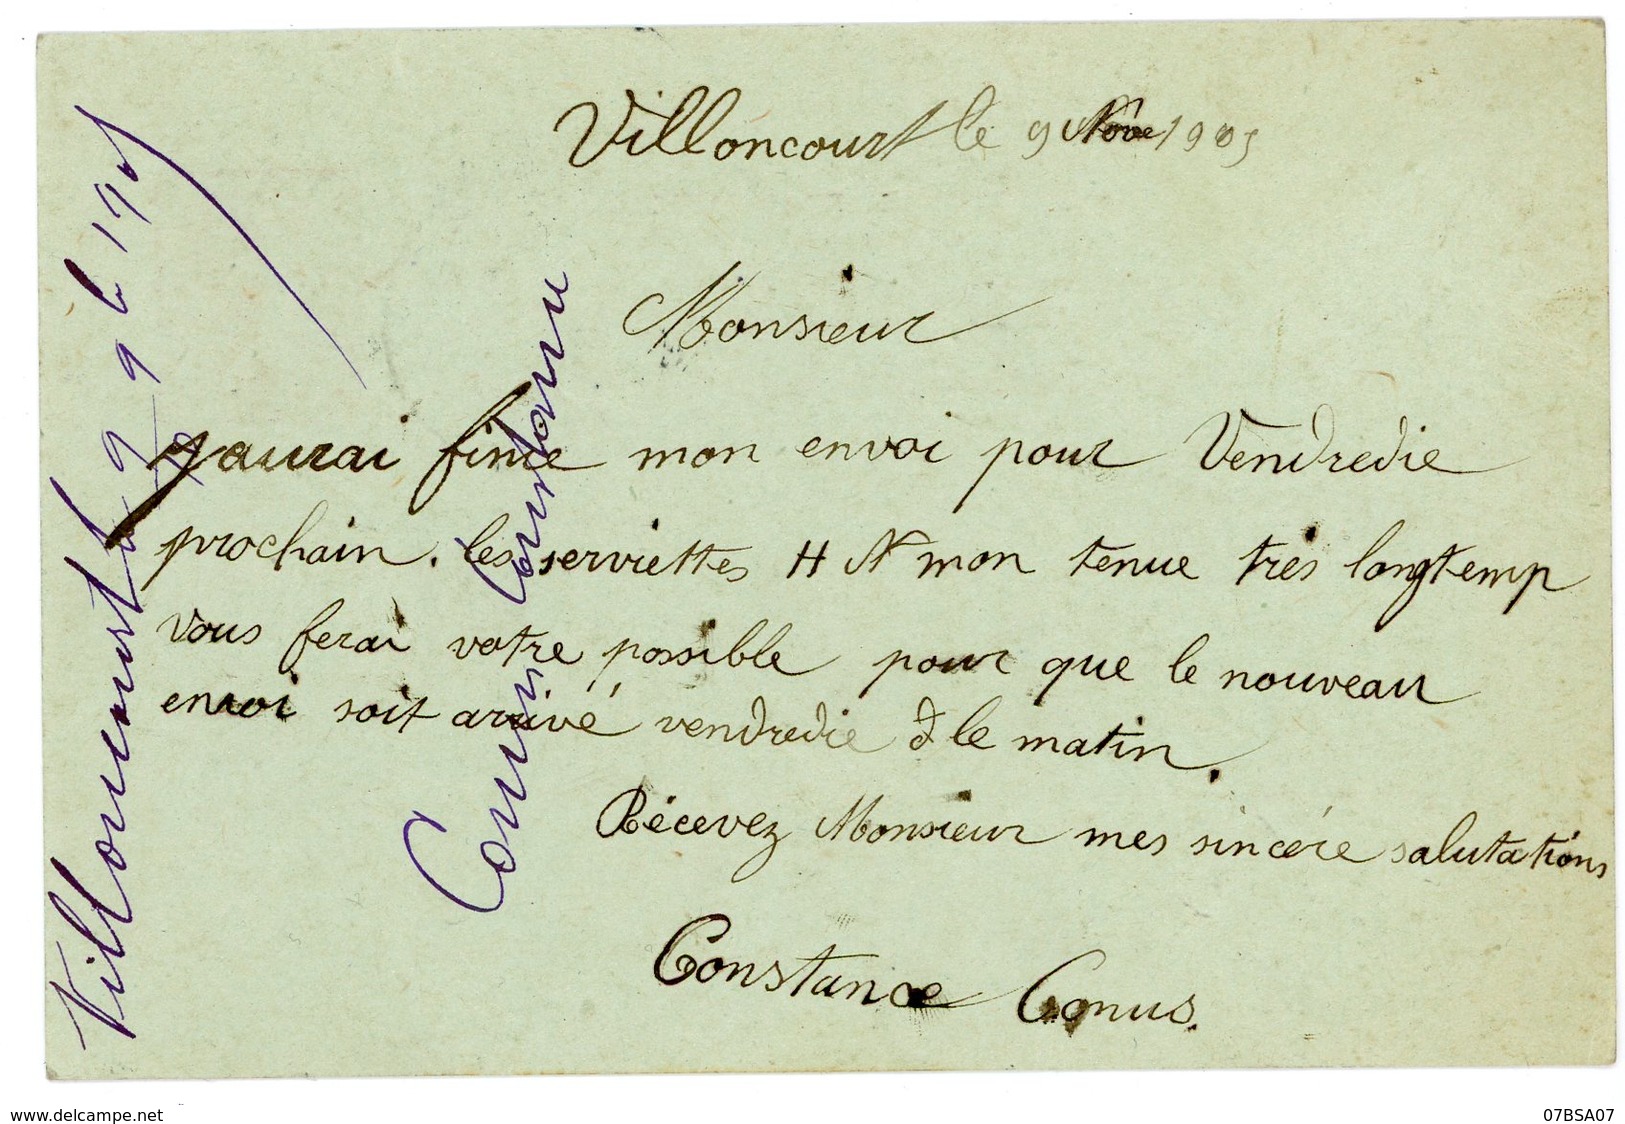 Villoncourt le 9 Nove 1905
Monsieur
jaurai finie mon envoi pour Vendredie
prochain. les serviettes H N mon tenue très longtemp
vous ferai votre possible pour que le nouveau
envoi soit arrivé vendredie d le matin.
Récevez Monsieur mes sincére salutations
Constance Conus.
Villoncourt le 9
Constance
www.delcampe.net
07BSA07